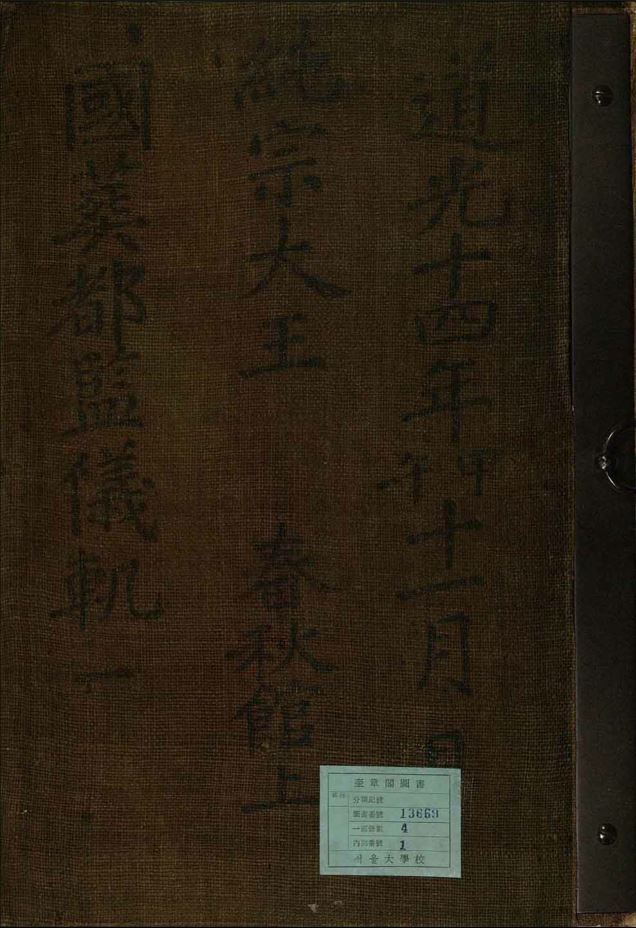 道光十四年甲午十一月 日
純宗大王 春秋館上
國葬都監儀軌一
奎章閣圖書
分類記號
圖書番號 13669
一部冊數 4
內部番號 1
서울大學校